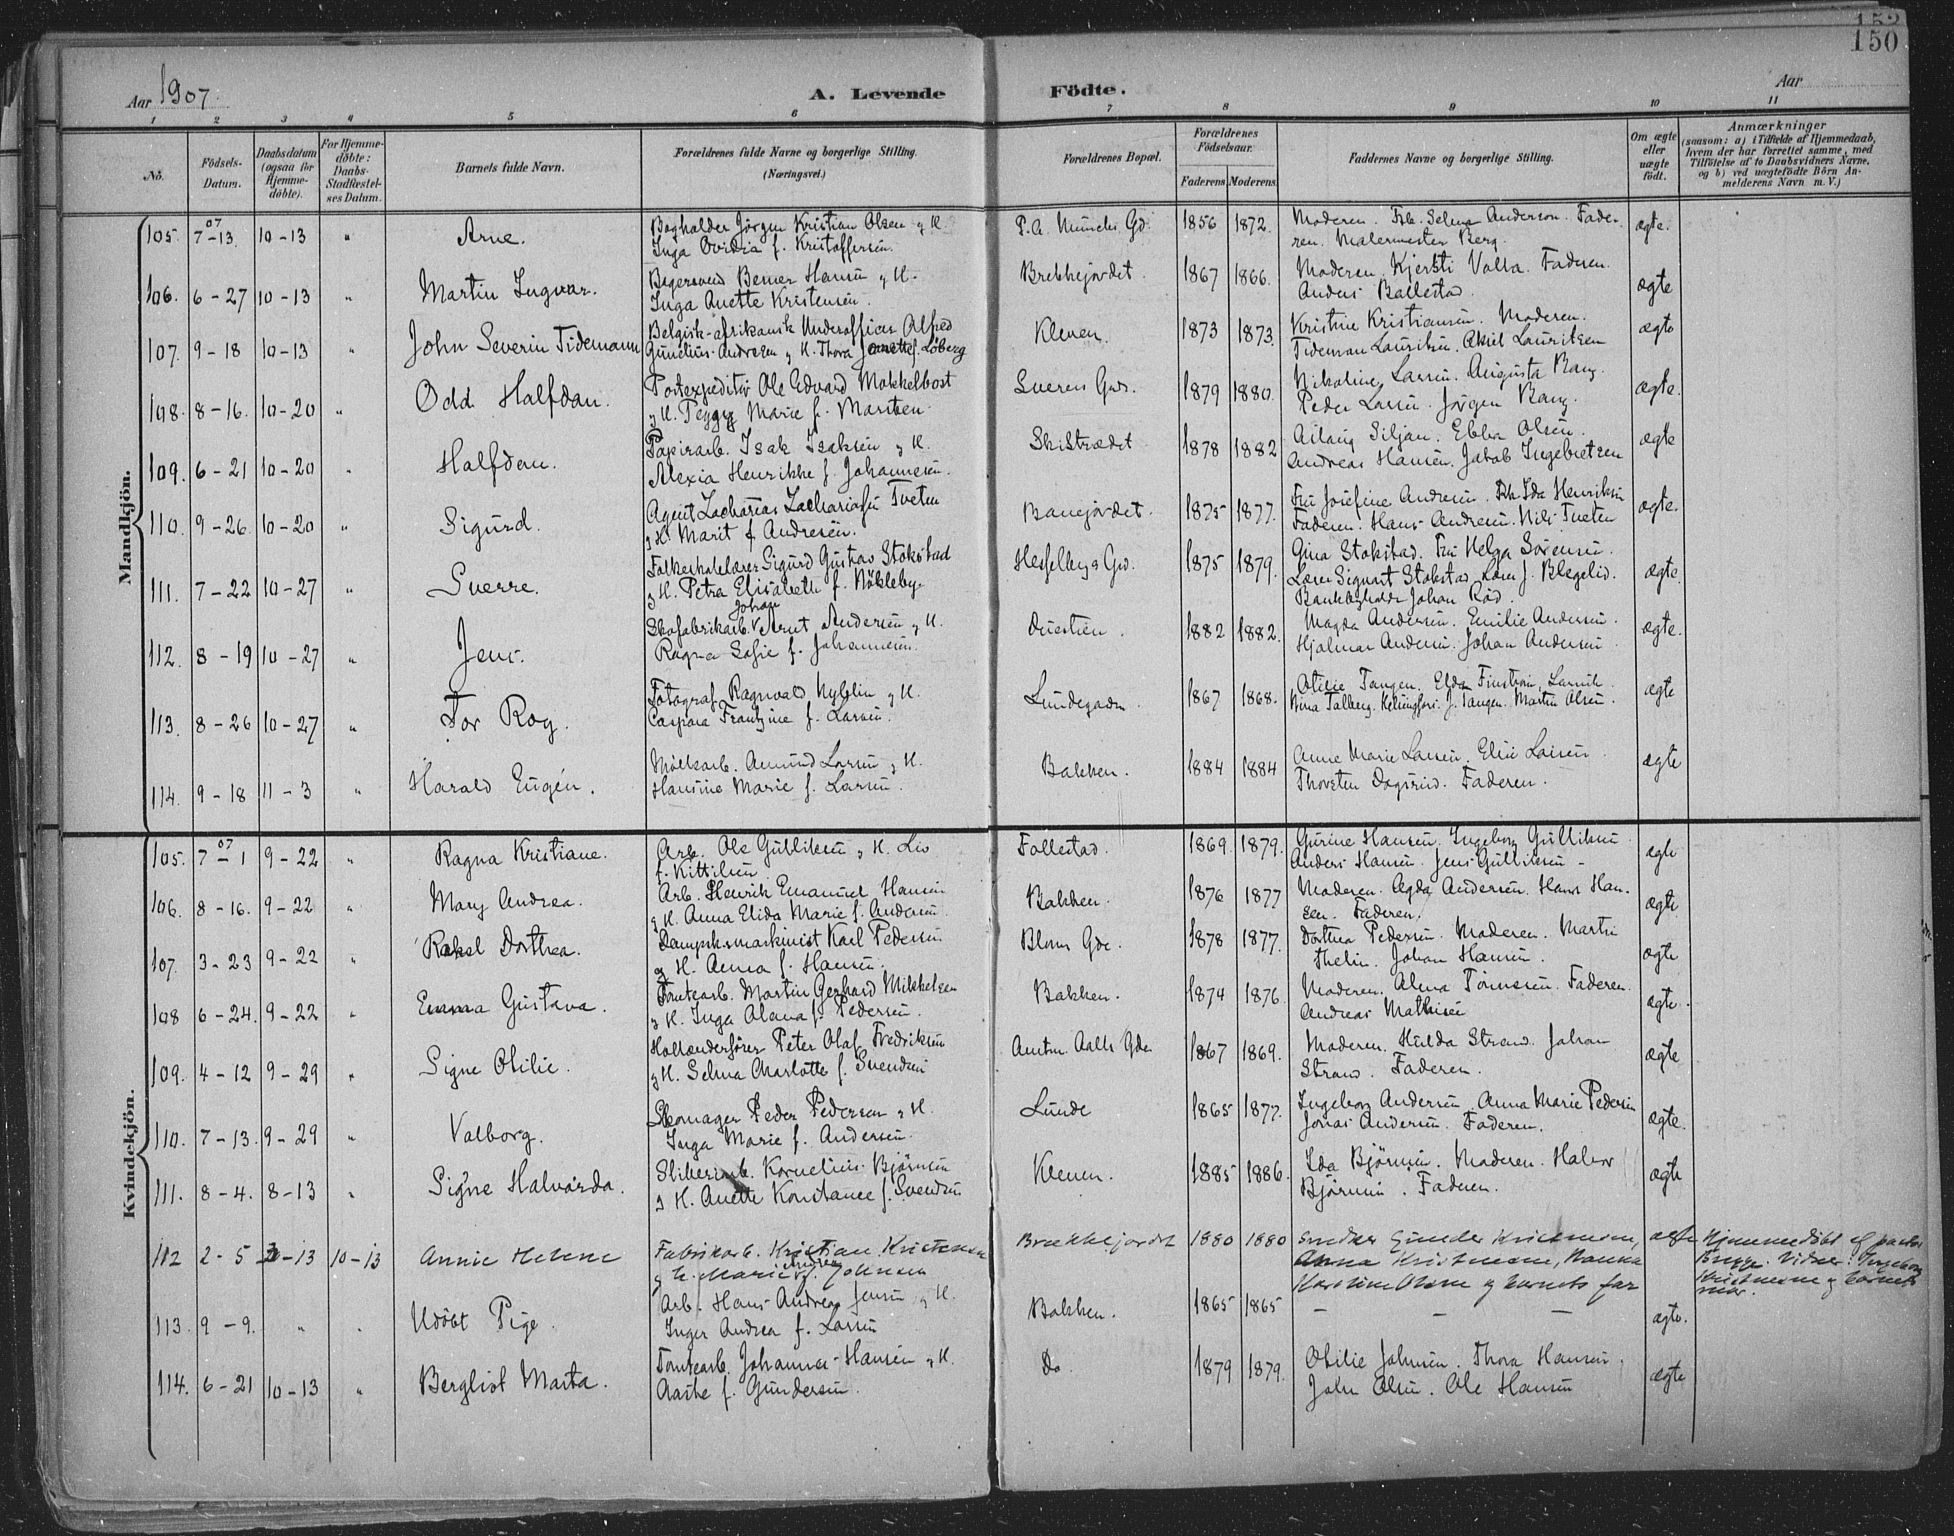 152
150
Aar 1907.
A. Levende Födte.
Aar
1 2 3 4 5 6 7 8 9 10 11
No.
Födsels-Datum.
Daabsdatum (ogsaa for Hjemme-döbte).
For Hjemme-döbte: Daabs-Stadfæstel-ses Datum.
Barnets fulde Navn.
Forældrenes fulde Navne og borgerlige Stilling. (Næringsvei.)
Forældrenes Bopæl.
Forældrenes Födselsaar.
Faderens Moderens
Faddernes Navne og borgerlige Stilling.
Om ægte eller uægte födt.
Anmærkninger
(saasom: a) i Tilfælde af Hjemmedaab, hvem der har forrettet samme, med Tilföielse af to Daabsvidners Navne, og b) ved uægtefödte Börn An-melderens Navn m. V.)
Mandkjön.
105. 07 7-13. 10-13 " Arne. Bogholder Jörgen Kristian Olsen og H. Inga Ovidia f. Kristoffersen. P.A. Munchs Gd. 1856 1872. Moderen. Frk. Selma Anderson. Fade-ren. Malermester Berg. ægte.
106. 6-27 10-13 " Martin Ingvar. Berner Hansen og H. Inga Anette Kristensen. Brekkejordet. 1867 1866. Moderen. Kjersti Valla. Faderen. Anders Ballestad. ægte
107. 9-18 10-13 " John Severin Tidemann Belgisk-afrikansk Underofficer Alfred Gunelius Andresen og H. Thora Janette f. Löberg Kleven. 1873 1873. Kristine Kristiansen. Moderen. Tideman Lauritsen. Aksel Lauritsen ægte
108. 8-16. 10-20 " Odd Halfdan. Postexpeditör Ole Edvard Mokkelbost og H. Peggy Marie f. Marthen. Sverens Gd. 1879 1880. Nikoline Larsen. Augusta Bang. Peder Larsen. Jörgen Bang. ægte.
109. 6-21 10-20 " Halfdan. Papirarb. Isak Isaksen og H. Alexia Henrikke f. Johannesen. Skistrædet 1878 1882 Aslaug Siljan. Ebba Olsen. Andreas Hansen. Jakob Ingebretsen ægte
110. 9-26. 10-20 " Sigurd. Agent Zacharias Zachariasen Tveten og H. Marit f. Andresen. Banejordet. 1875 1877. Fru Josefine Andresen. Frk. Ida Henriksen Faderen. Hans Andresen. Nils Tveten ægte.
111. 7-22 10-27 " Sverre. Folkeskolelærer Sigurd Gustav Stokstad og H. Petra Elisabeth f. Nökleby. Hesselbergs Gd. 1875 1879. Gina Stokstad. Fru Helga Sörensen. Lærer Sigvart Stokstad. Lærer J. Blegelid. Bankbogholder Johan Röd. ægte.
112. 8-19 10-27 " Jens. Skofabrikarb. Johan Arnt Andersen og H. Ragna Sofie f. Johannesen. Duestien. 1882 1882. Magda Andersen. Emilie Andersen. Hjalmar Andersen. Johan Andersen ægte.
113. 8-26 10-27 " Tor Roy. Fotograf Ragnvald Nyblin og H. Caspara Frantzine f. Larsen. Lundegaden. 1867 1868. Otilie Tangen. Elda Finström, Larvik. Nina Talberg. Helsingfors. J. Tangen. Martin Olsen. ægte
114. 9-18 11-3 " Harald Eugén. Möllearb. Amund Larsen og H. Hansine Marie f. Larsen. Bakken. 1884 1884 Anne Marie Larsen. Elise Larsen. Thorsten Dagsrud. Faderen. ægte
Kvindekjön.
105. 07 7-1 9-22 " Ragna Kristiane. Arb. Ole Gulliksen og H. Liv f. Kittilsen. Follestad. 1869 1879. Gurine Hansen. Ingeborg Gulliksen. Anders Hansen. Jens Gulliksen - ægte
106. 8-16. 9-22 " Mary Andrea. Arb. Henrik Emanuel Hansen og H. Anna Elida Marie f. Andersen. Bakken. 1876 1877 Moderen. Agda Andersen. Hans Han-sen. Faderen. ægte
107. 3-23 9-22 " Rakel Dorthea. Dampsk.maskinist Karl Pedersen og H. Anna f. Hansen. Bloms Gde. 1878 1877. Dorthea Pedersen. Moderen. Martin Thelin. Johan Hansen. ægte
108 6-24. 9-22 " Emma Gustava. Tomtearb. Martin Gerhard Mikkelsen og H. Inga Olava f. Pedersen. Bakken. 1874 1876. Moderen. Alma Tönnesen. Faderen. Andreas Mathisen ægte.
109. 4-12 9-29 " Signe Otilie. Hollænderförer Peter Olaf Fredriksen og H. Selma Charlotte f. Svendsen Amtm. Aalls Gde 1867 1869. Moderen. Hilda Strand. Johan Strand. Faderen. ægte
110. 7-13. 9-29 " Valborg. Skomager Peder Pedersen og H. Inga Marie f. Andersen. Lunde 1865 1877. Ingeborg Andersen. Anna Marie Pedersen Jonas Andersen. Faderen. ægte.
111. 8-4. 8-13 " Signe Halvarda. Sliberiarb. Kornelius Björnsen og H. Anette Konstance f. Svendsen Kleven. 1885 1886. Ida Björnsen. Moderen. Halvor Björnsen. Faderen. ægte
112 2-5 2-13 10-13 Annie Helene Fabrikarb. Kristian Kristensen og h. Marie Andrea f. Johnsen Brækkejordet 1880 1880 Snedker Gunder Kristensen, Anna Kristensen, Hanna Karoline Olsen og barnets far ægte Hjemmedöbt af pastor Brygge. Vidner: Ingeborg Kristensen og barnets mor.
113. 9-9. " . Udöbt Pige. Arb. Hans Andreas Jensen og H. Inger Andrea f. Larsen Bakken. 1865 1865 - - - ægte.
114. 6-21 10-13 " Bergliot Marta. Tomtearb. Johannes Hansen og H. Aaste f. Gundersen. Do. 1879 1879. Otilie Johnsen. Thora Hansen. John Olsen. Ole Hansen ægte